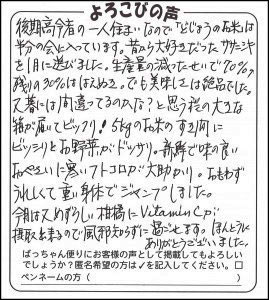 よろこびの声
後期高令者の一人住まいなので「どじょうのお米」は
半分の会に入っています。昔から大好きだったササニシキ
を1月に選びました。生産量の減ったせいで70%。
残りの30%ははえぬき。でも美味しさは絶品でした。
文春には間違ってるのかな？と思う程の大きな
箱が届いてビックリ！5kgのお米のすき間に
ビッシリとお野菜がドッサリ。新鮮で味の良い
おやさいに寒いトコロが大助かり。おもわず
うれしくて重い身体でジャンプしました。
今月は又めずらしい柑橘にVitaminCが
摂取出来るので風邪知らずに過ごせます。ほんとうに
ありがとうございました。
ばっちゃん便りにお客様の声として掲載してもよろしい
でしょうか？匿名希望の方は✓を記入してください。□
ペンネームの方（　　　　　）